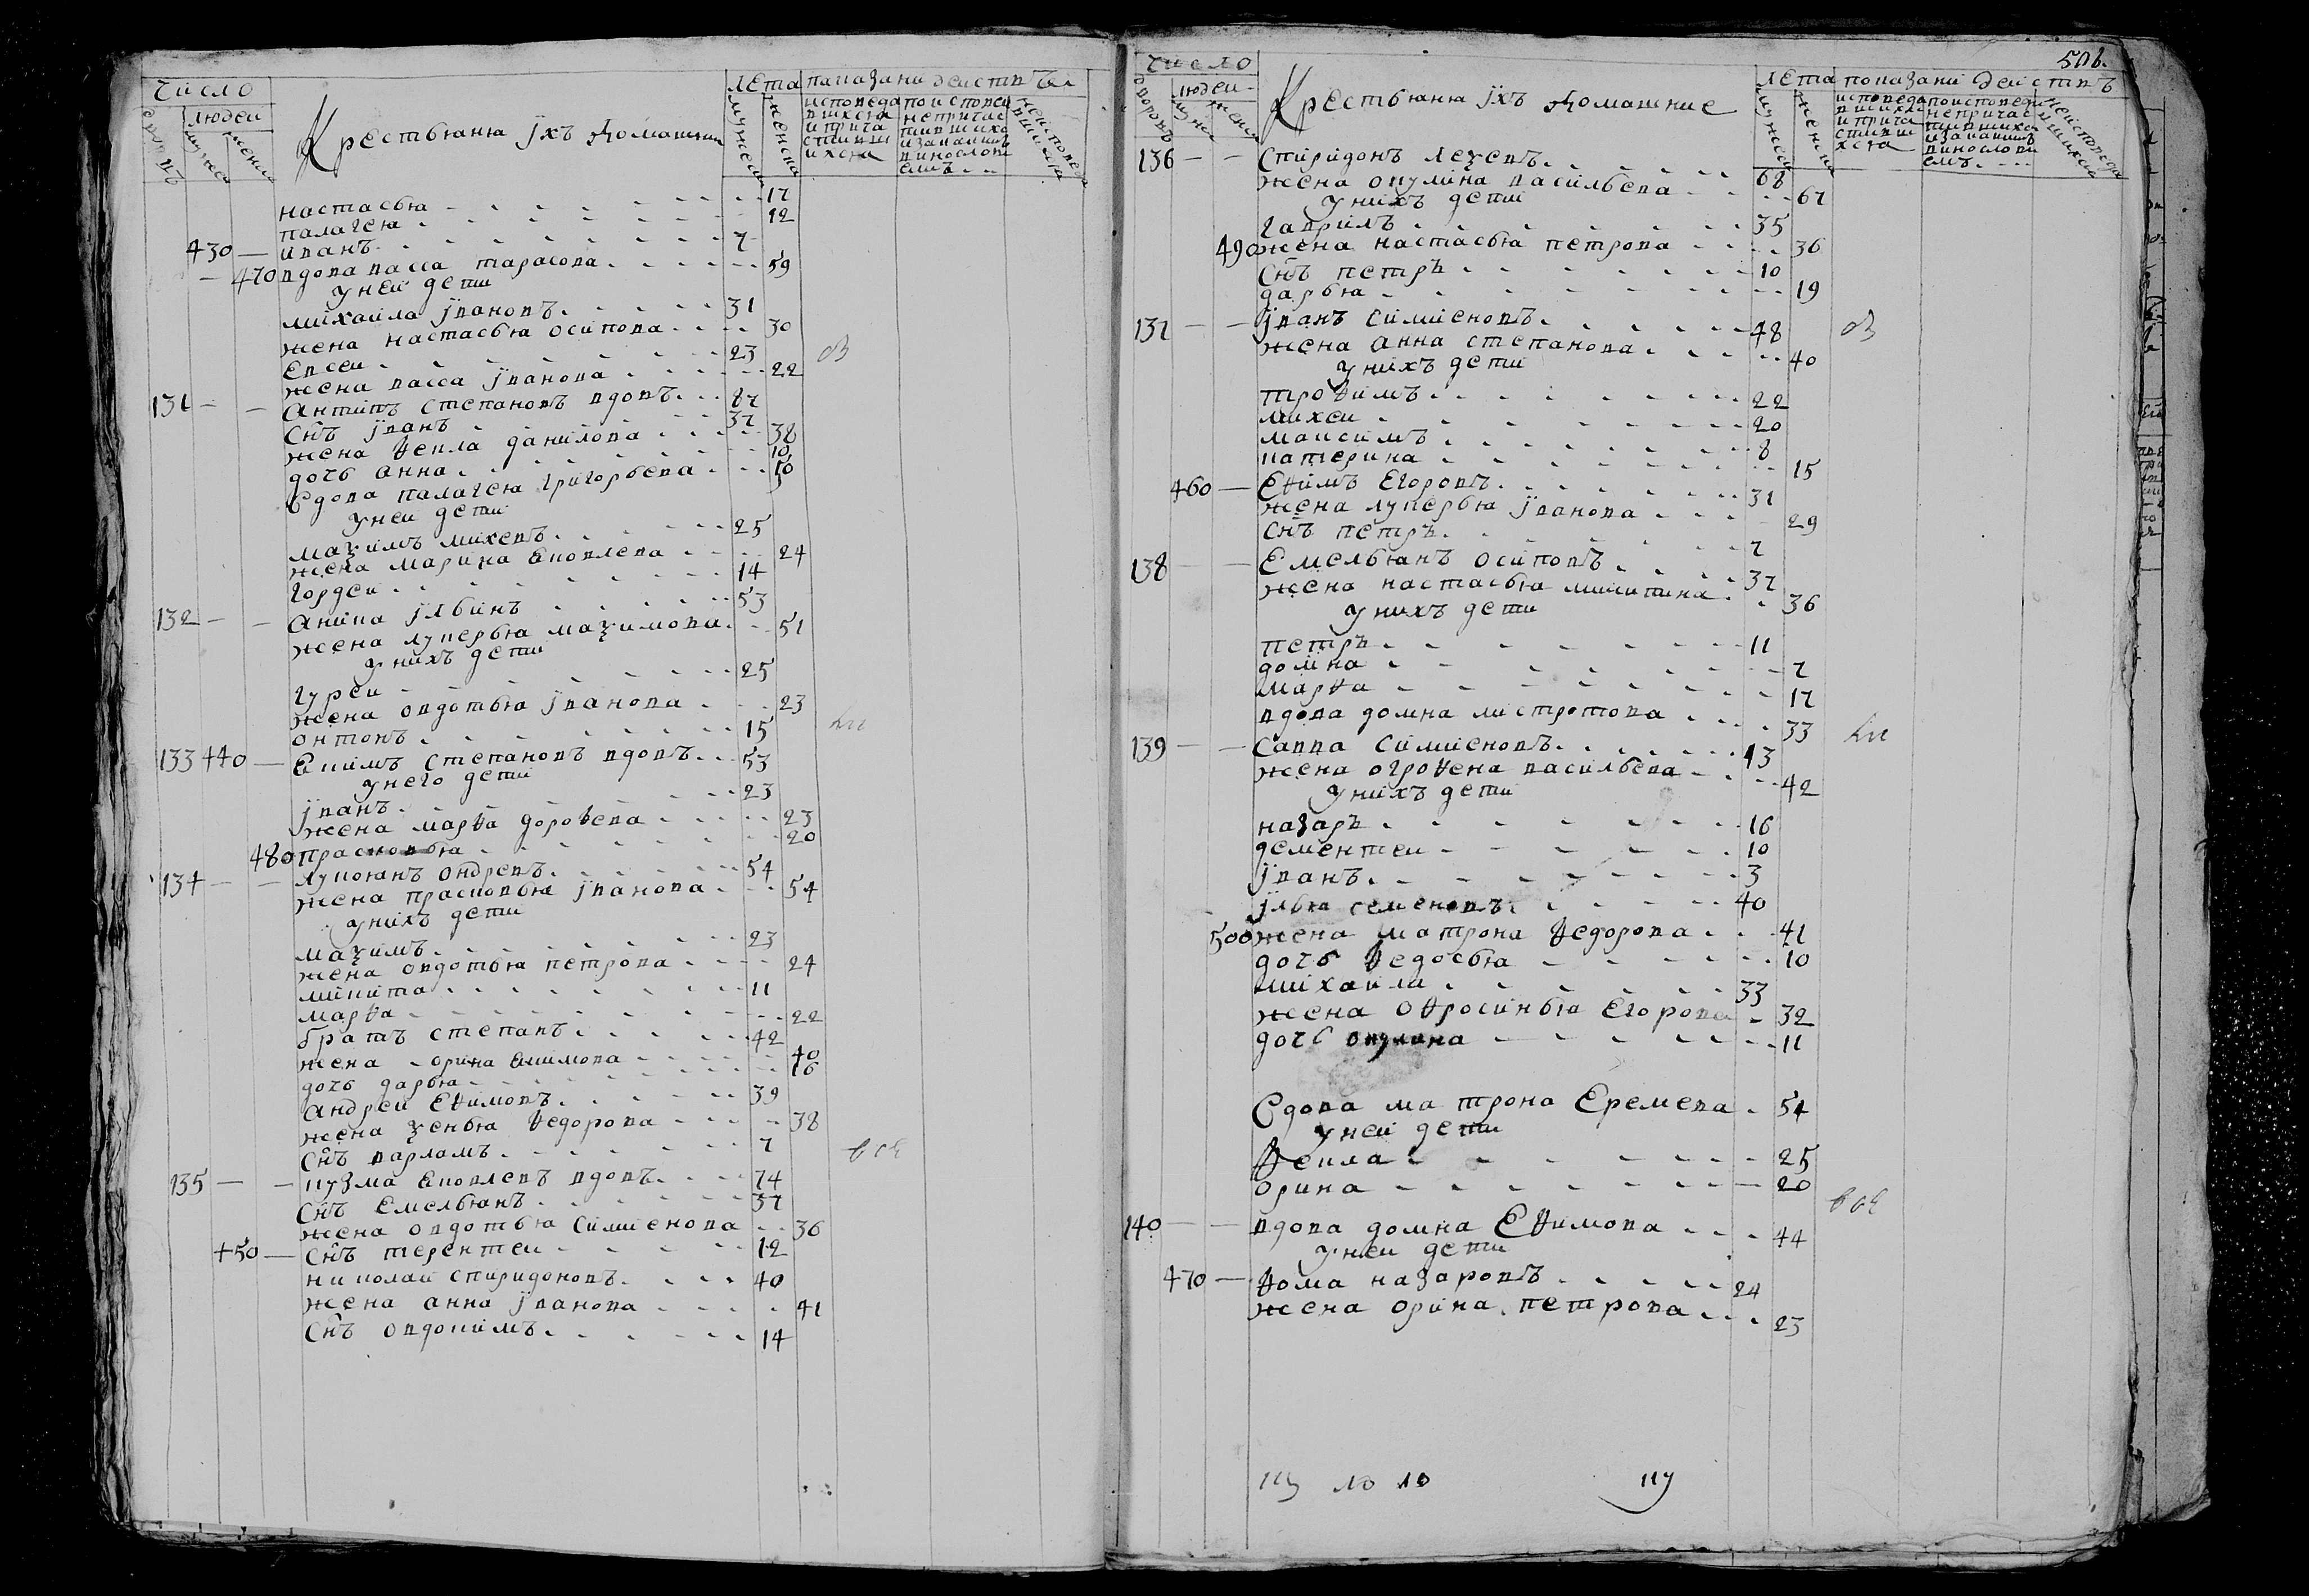 число
людеи
дворовъ
мужеска
женска
Крестьяня ихъ домашнии
Лета
мужеска
женска
показани деиствъ
исповеда
вшихся
и прича
стивши
ихся
по испове
непричас
тившихс
и за каким
винослови
емъ
неисповеда
вшихся
настасья 17
палагея 12
430 — иванъ 7
470 вдова васса тарасова 59
у неи дети
михаила їванов 31
жена настасья осипова 30
Евсеи 23
жена васса їванова 22
131 — — Антипъ степановъ вдовъ 87
снъ їванъ 37
жена ѳекла данилова 38
дочь анна 10
Вдова палагея григорьева 50
у неи дети
мақимъ михеевъ 25
жена марина яковлева 24
гордеи 14
132 — — аника їльинъ 53
жена лукерья мақимова 51
у нихъ дети
гуреи 25
жена овдотья їванова 23
онтонъ 15
133 440 — Якимъ степановъ вдовъ 53
у него дети
їванъ 23
жена марѳа дороѳева 23
480 прасковья 20
134 — — лукоянъ ондревъ 54
жена прасковья їванова 54
у нихъ дети
мақимъ 23
жена овдотья петрова 24
микита 11
марѳа 22
братъ степанъ 42
жена орина якимова 40
дочь дарья 16
андреи Еѳимовъ 39
жена қенья ѳедорова 38
снъ варламъ 7
135 — — кузма яковлевъ вдовъ 74
снъ Емельянъ 37
жена овдотья симиенова 36
450 — снъ терентеи 12
николаи спиридоновъ 40
жена анна їванова 41
снъ овдокимъ 14
506.
число
людеи
дворовъ
мужеска
женска
Крестьяня ихъ домашние
Лета
мужеска
женска
показани деиствъ
исповеда
вшихс
и прича
стивши
хся
по исповеди
непричас
тившихся
и за каким
винослови
емъ
неисповеда
вшихся
136 — — спиридонъ леқевъ 68
жена окулина васильева 67
у нихъ дети
гаврилъ 35
490 жена настасья петрова 36
снъ петръ 10
дарья 19
137 — — їванъ симиеновъ 48
жена анна степанова 40
у нихъ дети
троѳимъ 22
михеи 20
максимъ 8
катерина 15
460 — Еѳимъ Егоровъ 31
жена лукерья їванова 29
снъ петръ 7
138 — — Емельянъ осиповъ 37
жена настасья микитина 36
у нихъ дети
петръ 11
домна 7
марѳа 17
вдова домна митротова 33
139 — — савва симиеновъ 43
жена огроѳена васильева 42
у нихъ дети
назаръ 16
дементеи 10
їванъ 3
їлья семеновъ 40
500 жена матрона ѳедорова 41
дочь ѳедосья 10
михаила 33
жена оѳросинья Егорова 32
дочь окулина 11
Вдова матрона Еремева 54
у неи дети
ѳекла 25
орина 20
140 — — вдова домна Еѳимова 44
у неи дети
470 — ѳома назаровъ 24
жена орина петрова 23